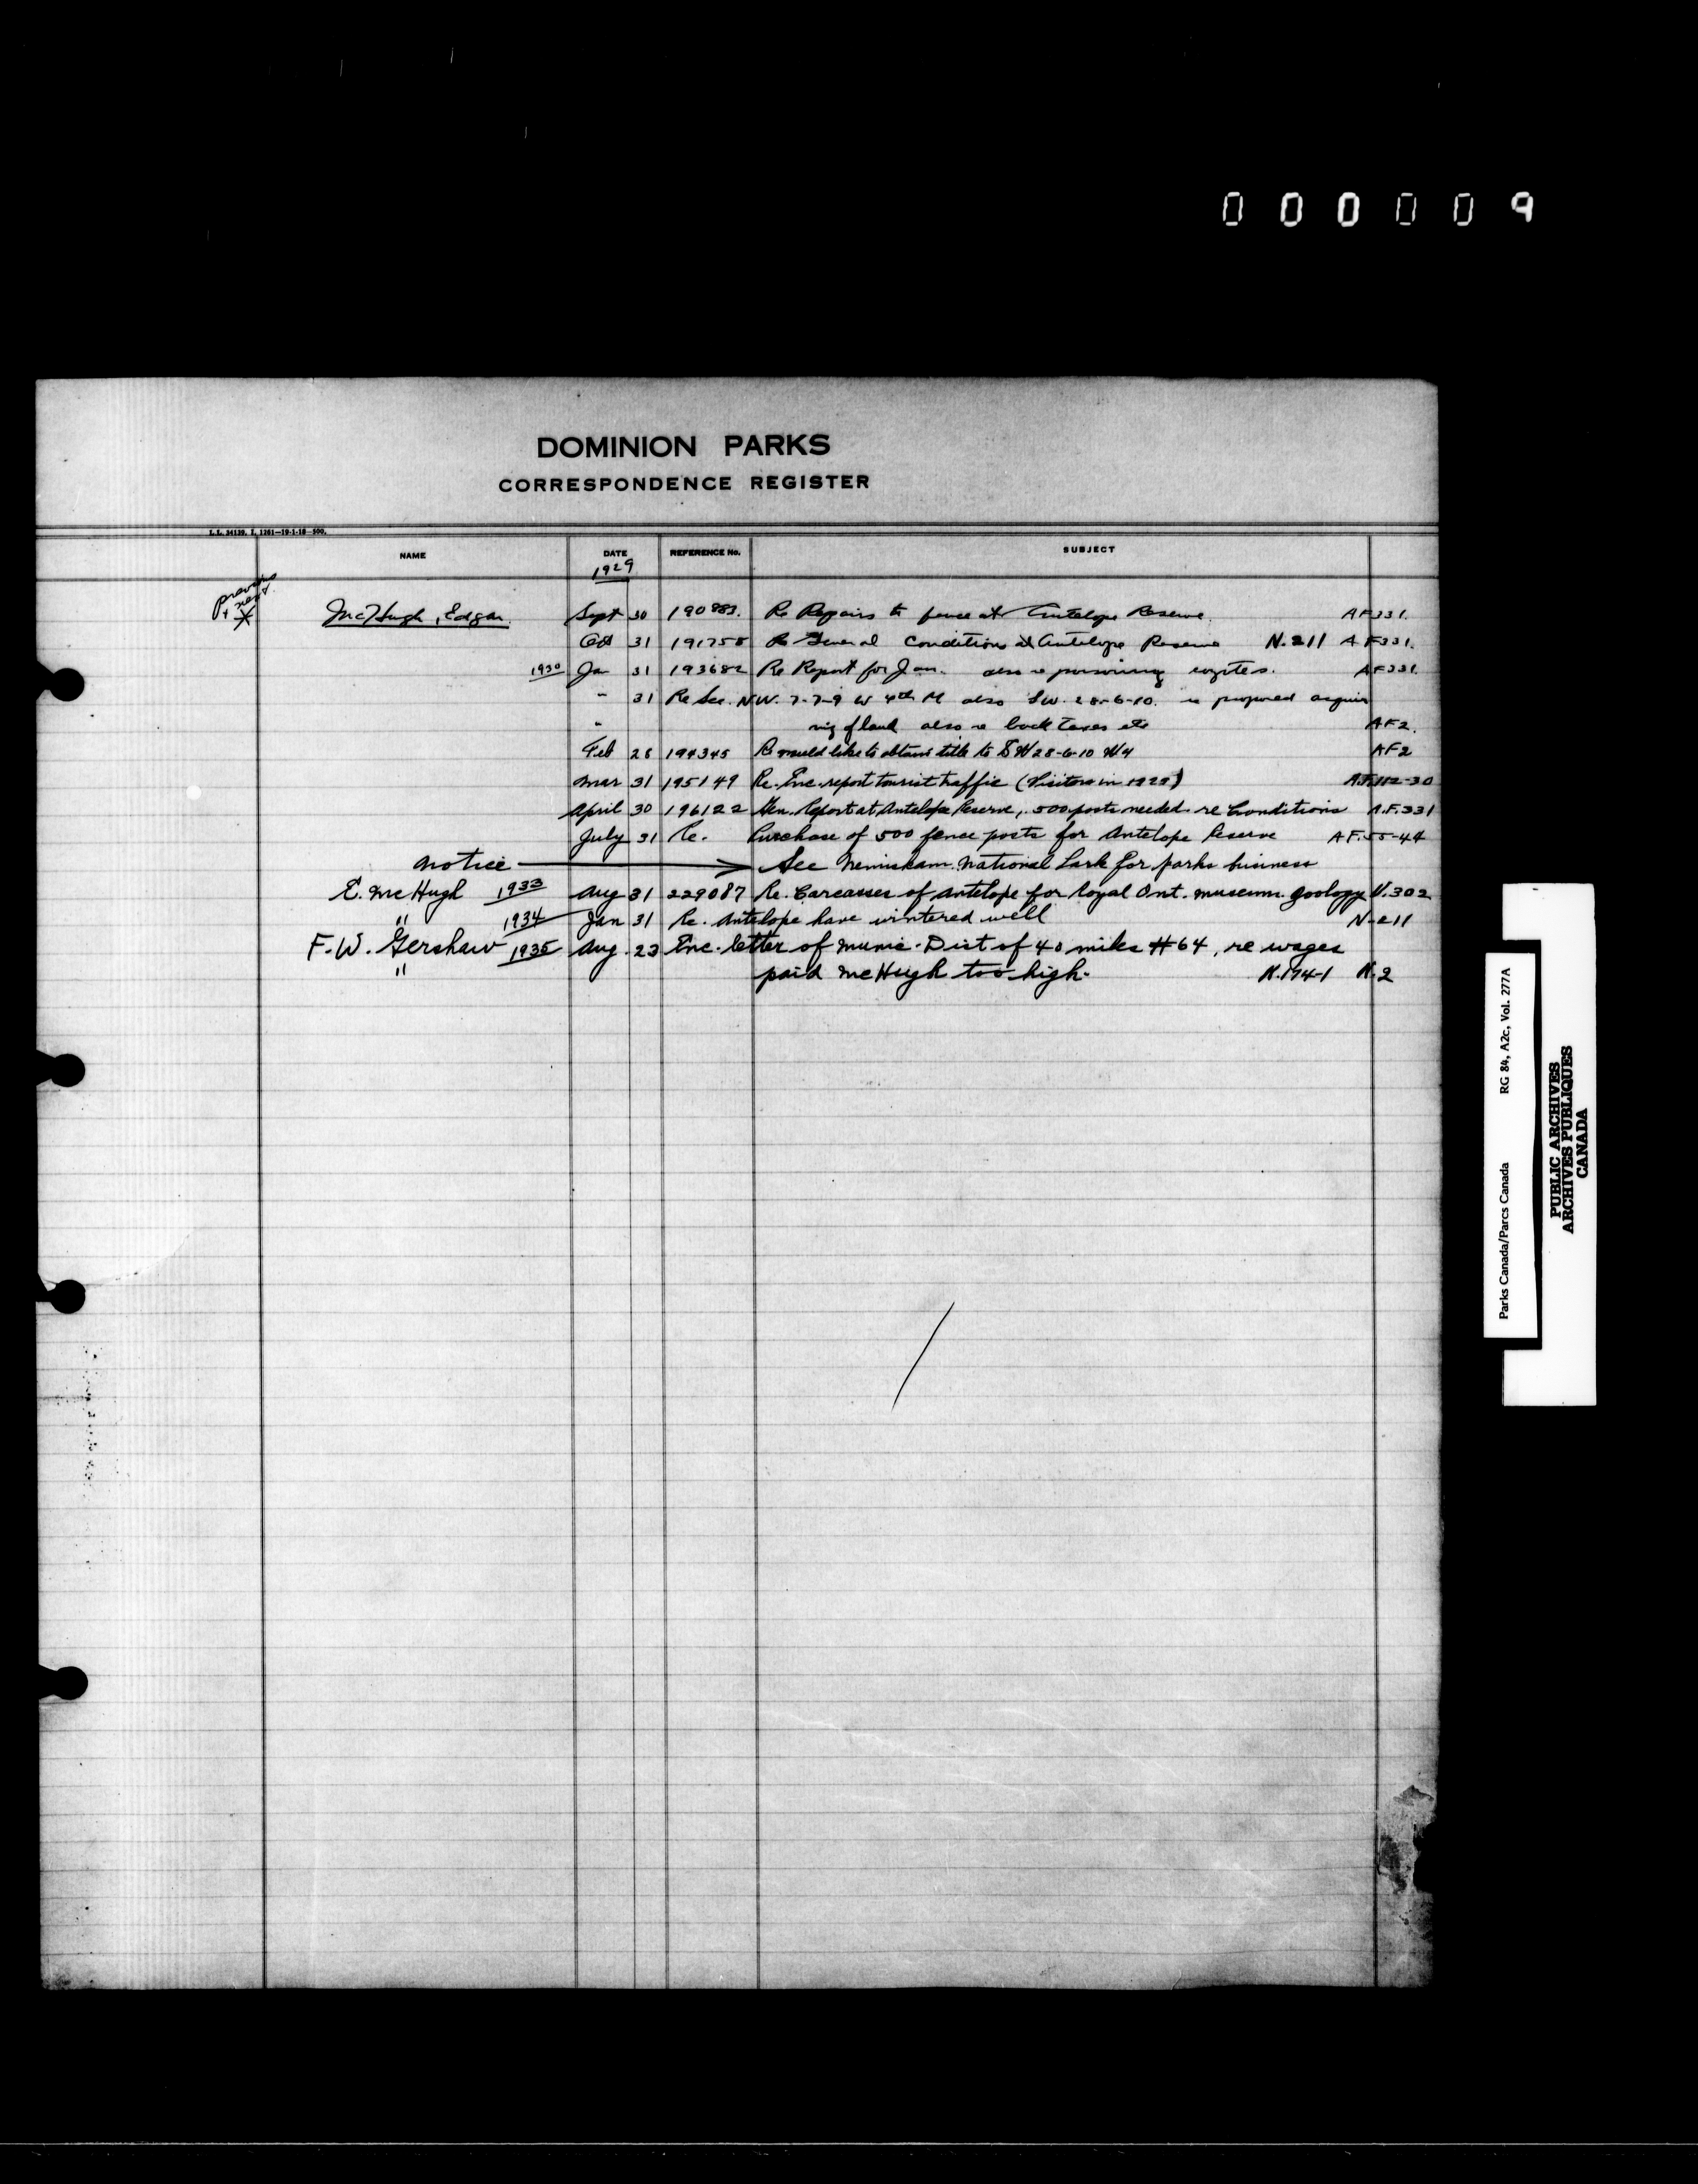 000009
DOMINION PARKS
CORRESPONDENCE REGISTER
L.L. 34139. I. 1261—19-1-18—500.
NAME DATE REFERENCE No. SUBJECT
1929
previous
+ next
X McHugh, Edgar. Sept 30 190883. Re Repairs to fence at Antelope Reserve. AF331.
Oct 31 191758 Re General Conditions at Antelope Reserve N.211 AF331.
1930 Jan 31 193682 Re Report for Jan. also re poisoning coyotes. AF331.
" 31 Re Sec. NW. 7-7-9 W 4th M also SW. 28-6-10. re proposed acquir
" ing of land also re back taxes etc AF2.
Feb 28 194345 Re would like to obtain title to SW 28-6-10 W4 AF2
Mar 31 195149 Re. Enc. report tourist traffic (Visitors in 1929) A.F.112-30
April 30 196122 Gen. Report at Antelope Reserve, 500 posts needed. re Conditions A.F.331
July 31 Re. Purchase of 500 fence posts for Antelope Reserve A.F.55-44
notice → See Nemiskam National Park for parks business
E. McHugh 1933 Aug 31 229087 Re. Carcasses of antelope for Royal Ont. museum. Zoology N.302
" 1934 Jan 31 Re. Antelope have wintered well N-211
F.W. Gershaw 1935 Aug. 23 Enc. letter of Munic. Dist of 40 miles #64, re wages
" paid McHugh too high. N.174-1 N.2
Parks Canada/Parcs Canada RG 84, A2c, Vol. 277A
PUBLIC ARCHIVES
ARCHIVES PUBLIQUES
CANADA